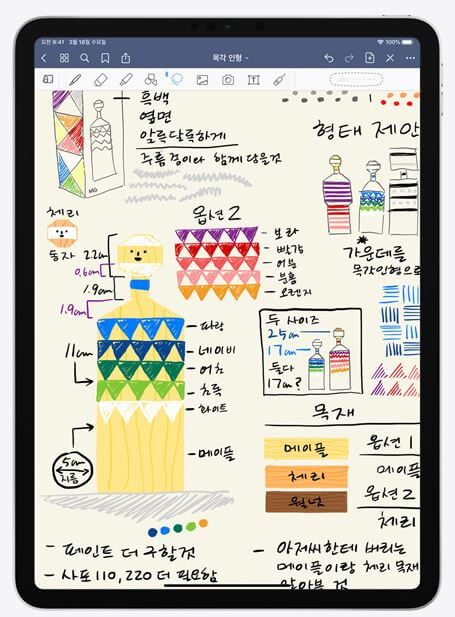 오전 9:41 3월 18일 수요일
100%
목각 인형
흑백
옆면
알록달록하게
주름종이와 함께 담을것
MG
형태 제안
체리
동자
22cm
0.6cm
1.9cm
1.9cm
11cm
5cm
지름
옵션 2
보라
빨강
여분
분홍
오렌지
파랑
네이비
녹초
초록
화이트
메이플
가운데를
목각인형으로
두 사이즈
25cm
17cm
둘다
17cm?
목재
메이플
체리
월넛
옵션 1
메이플
옵션 2
체리
- 페인트 더 구할것
- 사포 110, 220 더 필요함
- 아저씨한테 버리는
메이플이랑 체리 목재
알아볼 것